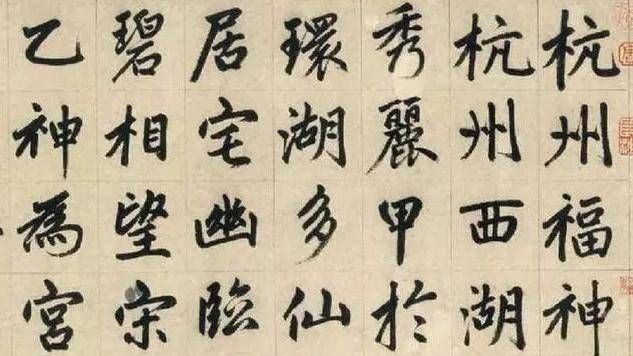 杭州福神
杭州西湖
秀麗甲於
環湖多仙
居宅幽臨
碧相望宗
乙神為宮